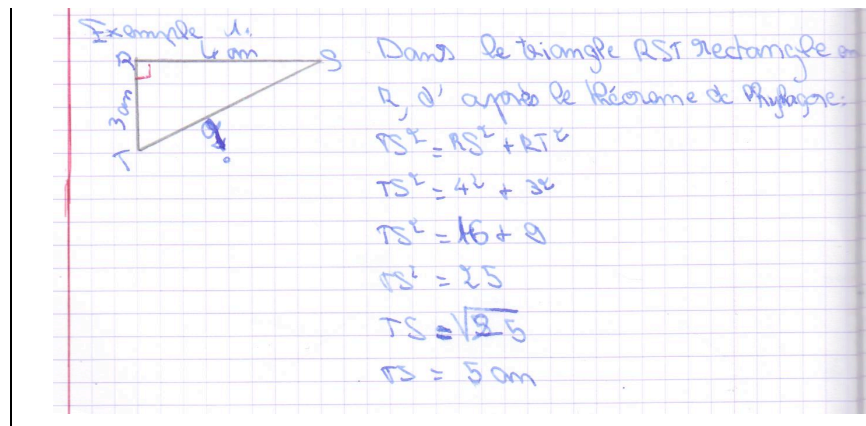 Exemple 1.
4 cm
R
S
3 cm
T
?
Dans le triangle RST rectangle en
R, d'après le théorème de Phytagore:
TS² = RS² + RT²
TS² = 4² + 3²
TS² = 16 + 9
TS² = 25
TS = √25
TS = 5 cm